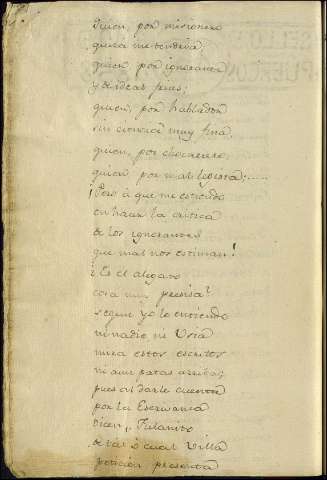 quien, por misionero
quiera me tendria;
quien por ignorante
y de ideas frias;
quien, por hablador
sin ciencia muy fina;
quien, por chocarrero,
quien por mal legista;......
¡Pero à que me estiendo
en hacer la critica
de los ignorantes
que mal nos estiman!
¿Es el alegato
cosa muy precisa?
segun yo lo entiendo
ni nadie ni Usia
mira estos escritos
ni aun patas arriba;
pues al darle cuenta
por la Escrivania
dicen,, Fulanito
de tal ó cual Villa
peticion presenta